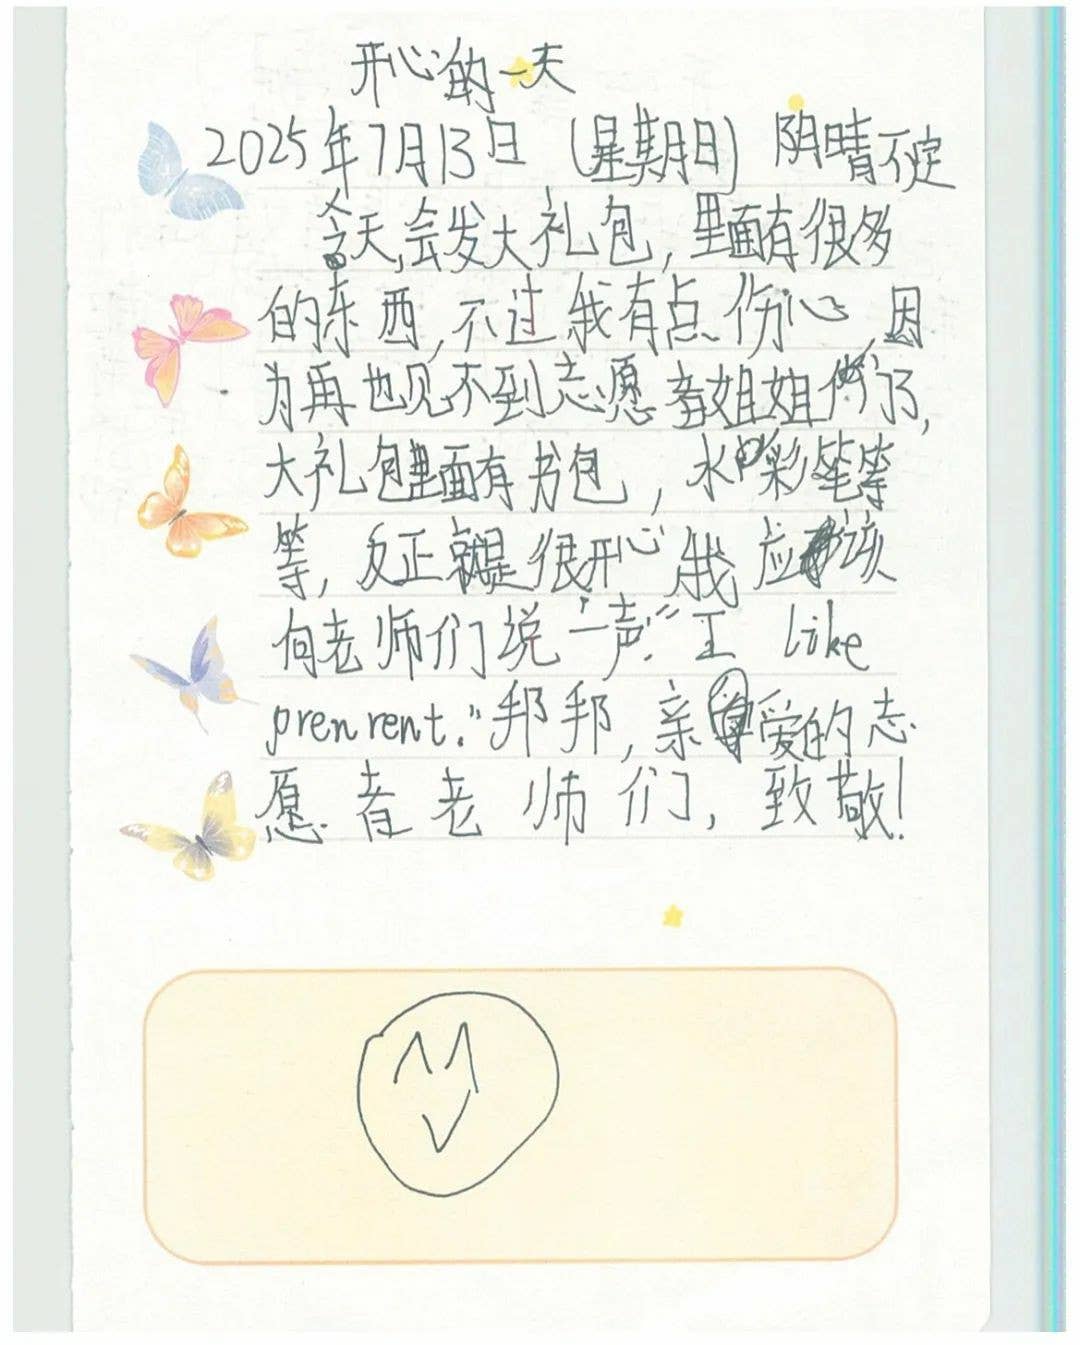 开心的一天
2025年7月13日（星期日）阴晴不定
今天,会发大礼包,里面有很多
的东西,不过我有点伤心,因
为再也见不到志愿者姐姐们了,
大礼包里面有书包,水彩笔等
等,反正就是很开心我应该
向老师们说一声"I like
prenrent."邦邦,亲爱的志
愿者老师们,致敬!